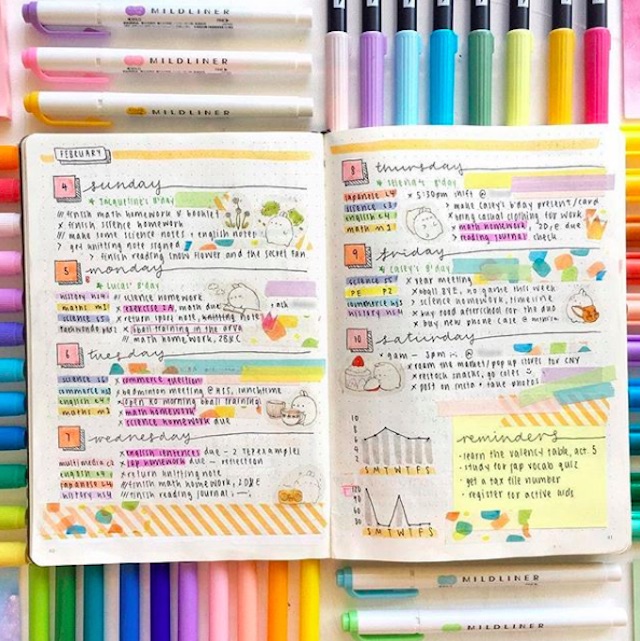 MILDLINER
MILDLINER
MILDLINER
FEBRUARY
4 sunday
Jacqueline's B'day
/// finish math homework & booklet
x finish science homework
/// make some science notes + english notes
> get knitting note signed
> finish reading snow flower and the secret fan
5 monday
Lucas' B'day
history
maths
science
taekwondo
/// science homework
x exercise 2A, math due
x return space note, knitting note
x bball training in the arvo
/// math homework, 2B&C
6 tuesday
science
commerce
english
maths
x commerce question
x badminton meeting @ H15, lunchtime
x open KO morning bball training
x math homework
x science homework due
7 wednesday
multimedia
english
japanese
history
x english sentences due - 2 TEP examples
x jap homework due - reflection
x return knitting note
finish math homework, 2D&E
/// finish reading journal
8 thursday
B'day
japanese
science
english
maths
x 5:30pm shift @
> make casey's b'day present/card
x bring casual clothing for work
x math homework, 2D,E due
> reading journal check
9 friday
Casey's B'day
science
PE
commerce
history
x year meeting
x no game this week
> science homework, timeline
x buy food afterschool for the duo
x buy new phone case @
10 saturday
9am - 3pm @
x roam the market/pop up stores for CNY
x restock snacks, go coles
x post on insta + take photos
10
8
6
4
2
S M T W T F S
reminders
• learn the valency table, act. 5
• study for jap vocab quiz
• get a tax file number
• register for active kids
S M T W T F S
MILDLINER
MILDLINER